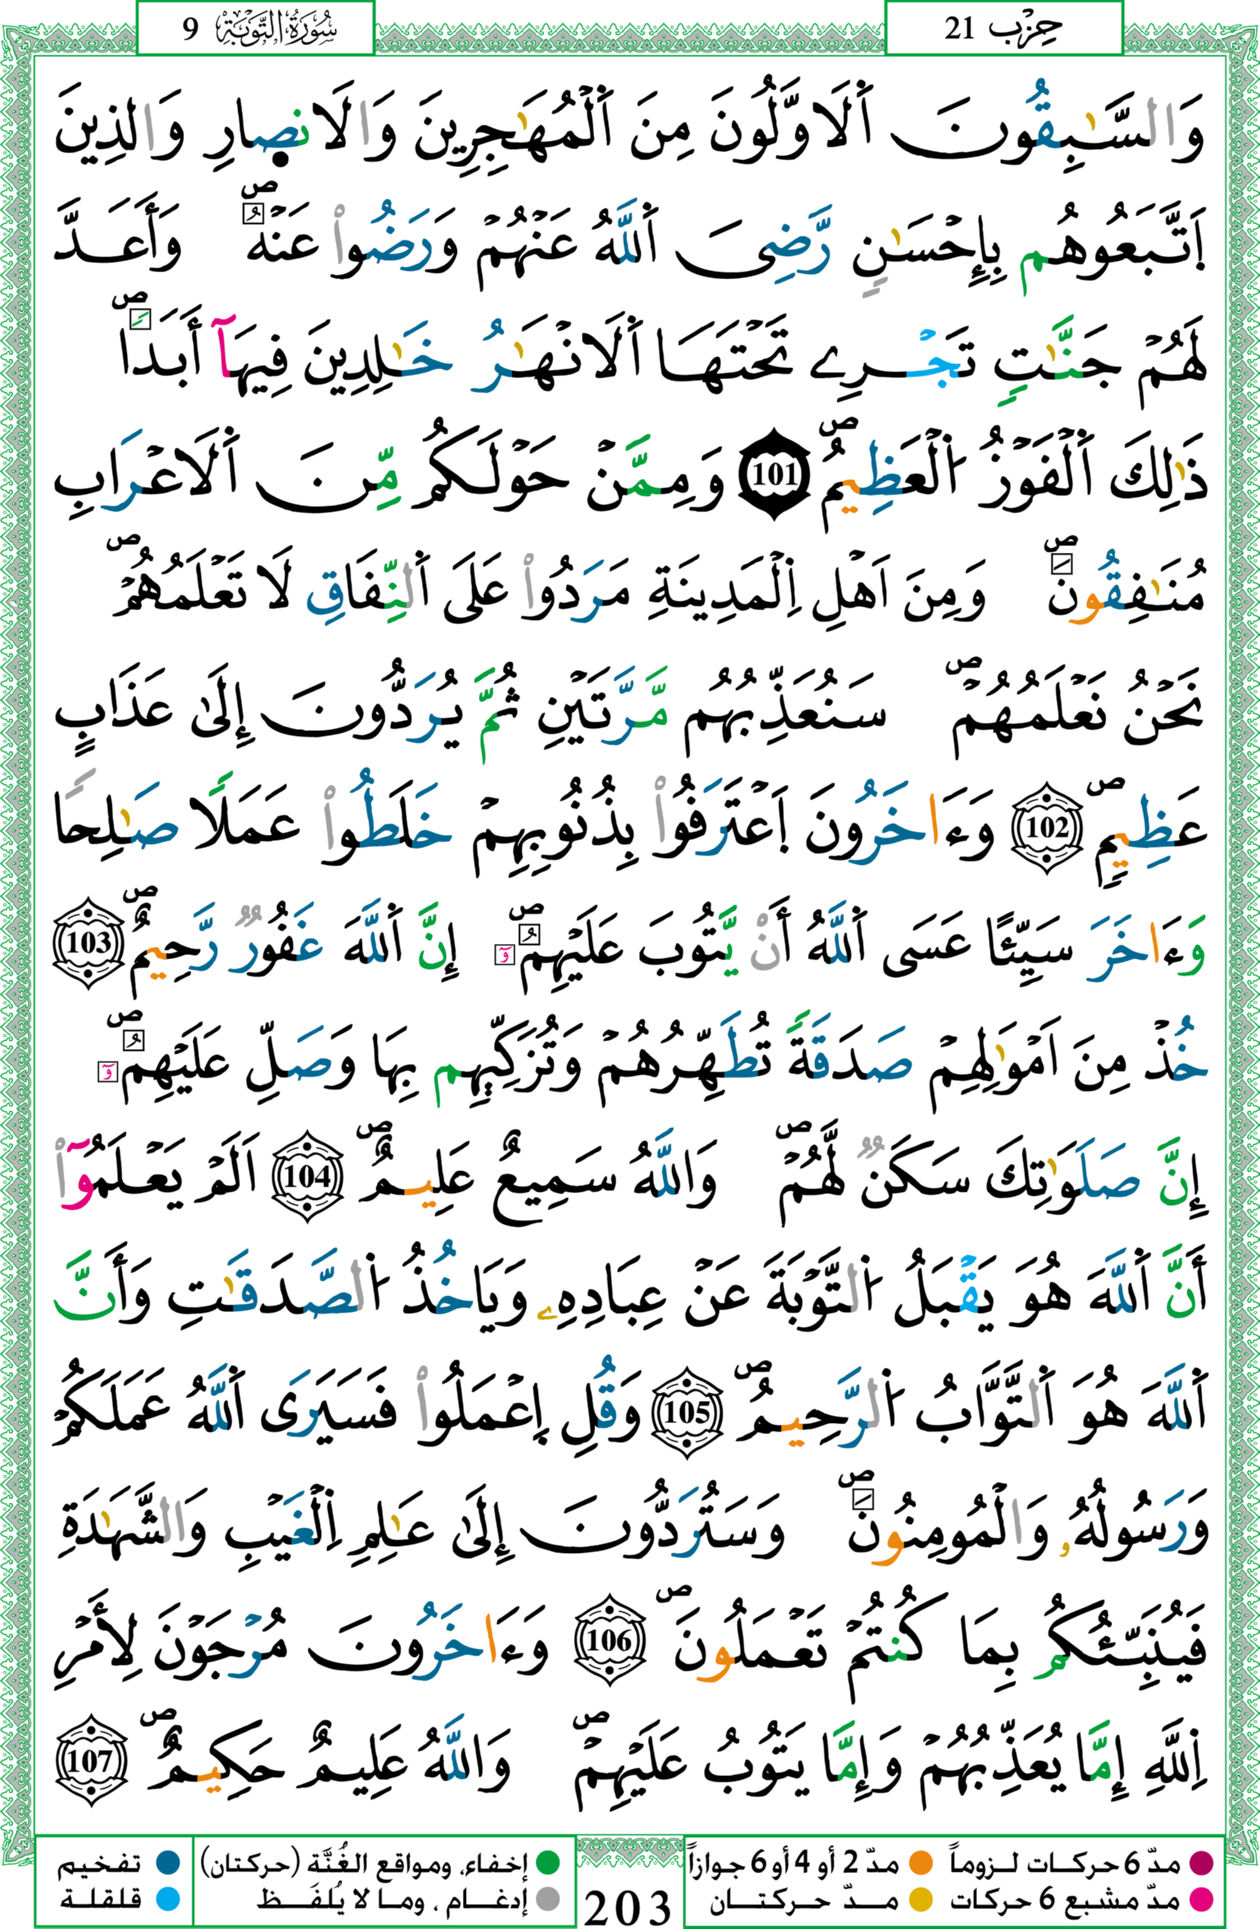 حِزْب 21
سُورَةُ التَّوْبَة 9
وَالسَّٰبِقُونَ اَ۬لَاوَّلُونَ مِنَ اَ۬لْمُهَٰجِرِينَ وَالَانص۪ارِ وَالذِينَ
اَتَّبَعُوهُم بِإِحْسَٰنٖ رَّضِيَ اَ۬للَّهُ عَنْهُمْ وَرَضُواْ عَنْهُۖ وَأَعَدَّ
لَهُمْ جَنَّٰتٖ تَجْرِے تَحْتَهَا اَ۬لَانْهَٰرُ خَٰلِدِينَ فِيهَآ أَبَداٗۖ
ذَٰلِكَ اَ۬لْفَوْزُ اُ۬لْعَظِيمُۖ 101 وَمِمَّنْ حَوْلَكُم مِّنَ اَ۬لَاعْرَابِ
مُنَٰفِقُونَۖ وَمِنَ اَهْلِ اِ۬لْمَدِينَةِ مَرَدُواْ عَلَى اَ۬لنِّفَاقِ لَا تَعْلَمُهُمْۖ
نَحْنُ نَعْلَمُهُمْۖ سَنُعَذِّبُهُم مَّرَّتَيْنِ ثُمَّ يُرَدُّونَ إِلَىٰ عَذَابٍ
عَظِيمٖۖ 102 وَءَاخَرُونَ اَ۪عْتَرَفُواْ بِذُنُوبِهِمْ خَلَطُواْ عَمَلاٗ صَٰلِحاٗ
وَءَاخَرَ سَيِّئًا عَسَى اَ۬للَّهُ أَنْ يَّتُوبَ عَلَيْهِمُۥٓۖ إِنَّ اَ۬للَّهَ غَفُورٞ رَّحِيمٌۖ 103
خُذْ مِنَ اَمْوَٰلِهِمْ صَدَقَةٗ تُطَهِّرُهُمْ وَتُزَكِّيهِم بِهَا وَصَلِّ عَلَيْهِمُۥٓۖ
إِنَّ صَلَوَٰتِكَ سَكَنٞ لَّهُمْۖ وَاللَّهُ سَمِيعٌ عَلِيمٌۖ 104 اَلَمْ يَعْلَمُوٓاْ
أَنَّ اَ۬للَّهَ هُوَ يَقْبَلُ اُ۬لتَّوْبَةَ عَنْ عِبَادِهِۦ وَيَاخُذُ اُ۬لصَّدَقَٰتِ وَأَنَّ
اَ۬للَّهَ هُوَ اَ۬لتَّوَّابُ اُ۬لرَّحِيمُۖ 105 وَقُلِ اِ۪عْمَلُواْ فَسَيَرَى اَ۬للَّهُ عَمَلَكُمْ
وَرَسُولُهُۥ وَالْمُومِنُونَۖ وَسَتُرَدُّونَ إِلَىٰ عَٰلِمِ اِ۬لْغَيْبِ وَالشَّهَٰدَةِ
فَيُنَبِّئُكُم بِمَا كُنتُمْ تَعْمَلُونَۖ 106 وَءَاخَرُونَ مُرْجَوْنَ لِأَمْرِ
اِ۬للَّهِ إِمَّا يُعَذِّبُهُمْ وَإِمَّا يَتُوبُ عَلَيْهِمْۖ وَاللَّهُ عَلِيمٌ حَكِيمٌۖ 107
مدّ 6 حركات لـزوماً
مدّ 2 أو 4 أو 6 جوازاً
إخفاء، ومواقع الغُنَّة (حركتان)
تفخيم
مدّ مشبع 6 حركات
مـــدّ حـركتـــان
إدغـام ، ومـا لا يُلفَـــظ
قلقلة
203